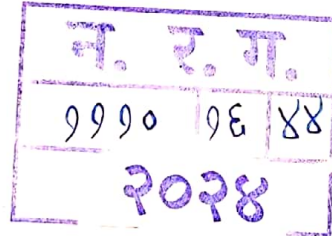 न. र. ग.
१११० १६ ४४
२०२४